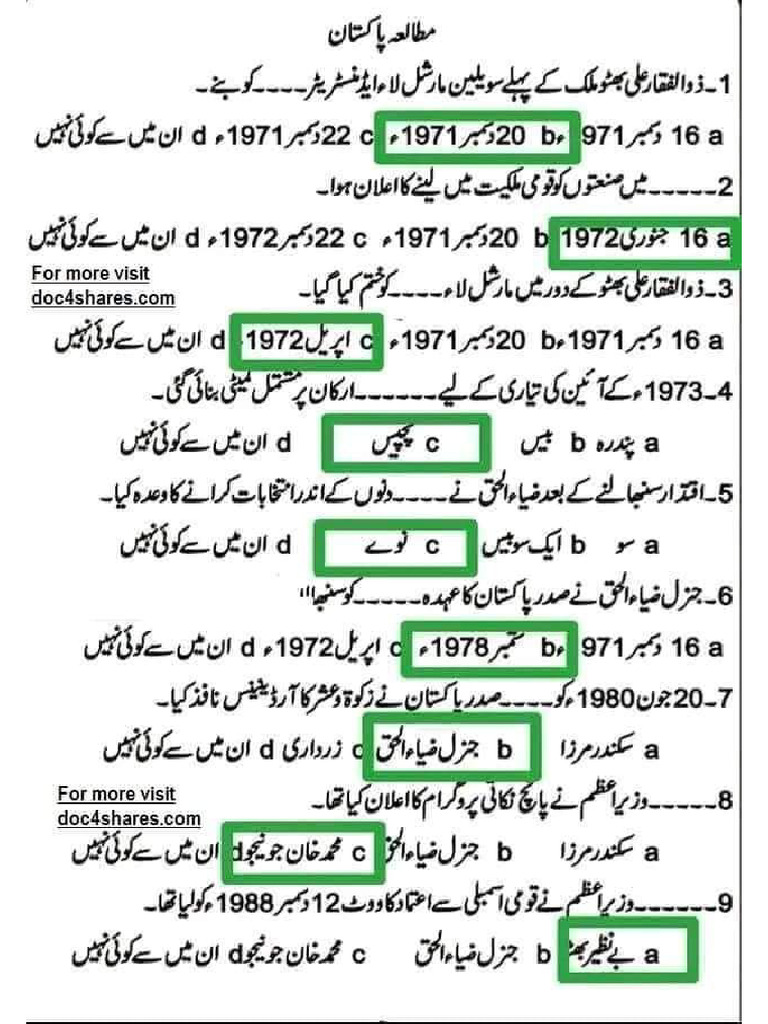 مطالعہ پاکستان
1۔ذوالفقار علی بھٹو ملک کے پہلے سویلین مارشل لاء ایڈمنسٹریٹر۔۔۔۔کو بنے۔
a 16 دسمبر 1971ء b 20دسمبر 1971ء c 22دسمبر 1971ء d ان میں سے کوئی نہیں
2۔۔۔۔۔۔میں صنعتوں کو قومی ملکیت میں لینے کا اعلان ہوا۔
a 16 جنوری1972 b 20دسمبر 1971ء c 22دسمبر 1972ء d ان میں سے کوئی نہیں
For more visit
doc4shares.com
3۔ذوالفقار علی بھٹو کے دور میں مارشل لاء۔۔۔۔کو ختم کیا گیا۔
a 16 دسمبر 1971ء b 20دسمبر 1971ء c اپریل 1972ء d ان میں سے کوئی نہیں
4۔1973ء کے آئین کی تیاری کے لیے۔۔۔۔۔۔ارکان پر مشتمل کمیٹی بنائی گئی۔
a پندرہ b بیس c پچیس d ان میں سے کوئی نہیں
5۔اقتدار سنبھالنے کے بعد ضیاء الحق نے۔۔۔۔دنوں کے اندر انتخابات کرانے کا وعدہ کیا۔
a سو b ایک سو بیس c نوے d ان میں سے کوئی نہیں
6۔جنرل ضیاء الحق نے صدر پاکستان کا عہدہ۔۔۔۔۔کو سنبھا
a 16 دسمبر 1971ء b ستمبر 1978ء c اپریل 1972ء d ان میں سے کوئی نہیں
7۔20جون 1980ء کو۔۔۔۔صدر پاکستان نے زکوۃ و عشر کا آرڈیننس نافذ کیا۔
a سکندر مرزا b جنرل ضیاء الحق c زرداری d ان میں سے کوئی نہیں
For more visit
doc4shares.com
8۔۔۔۔۔۔وزیر اعظم نے پانچ نکاتی پروگرام کا اعلان کیا تھا۔
a سکندر مرزا b جنرل ضیاء الحق c محمد خان جونیجو d ان میں سے کوئی نہیں
9۔۔۔۔۔۔وزیر اعظم نے قومی اسمبلی سے اعتماد کا ووٹ 12دسمبر 1988ء کو لیا تھا۔
a بے نظیر بھٹو b جنرل ضیاء الحق c محمد خان جونیجو d ان میں سے کوئی نہیں